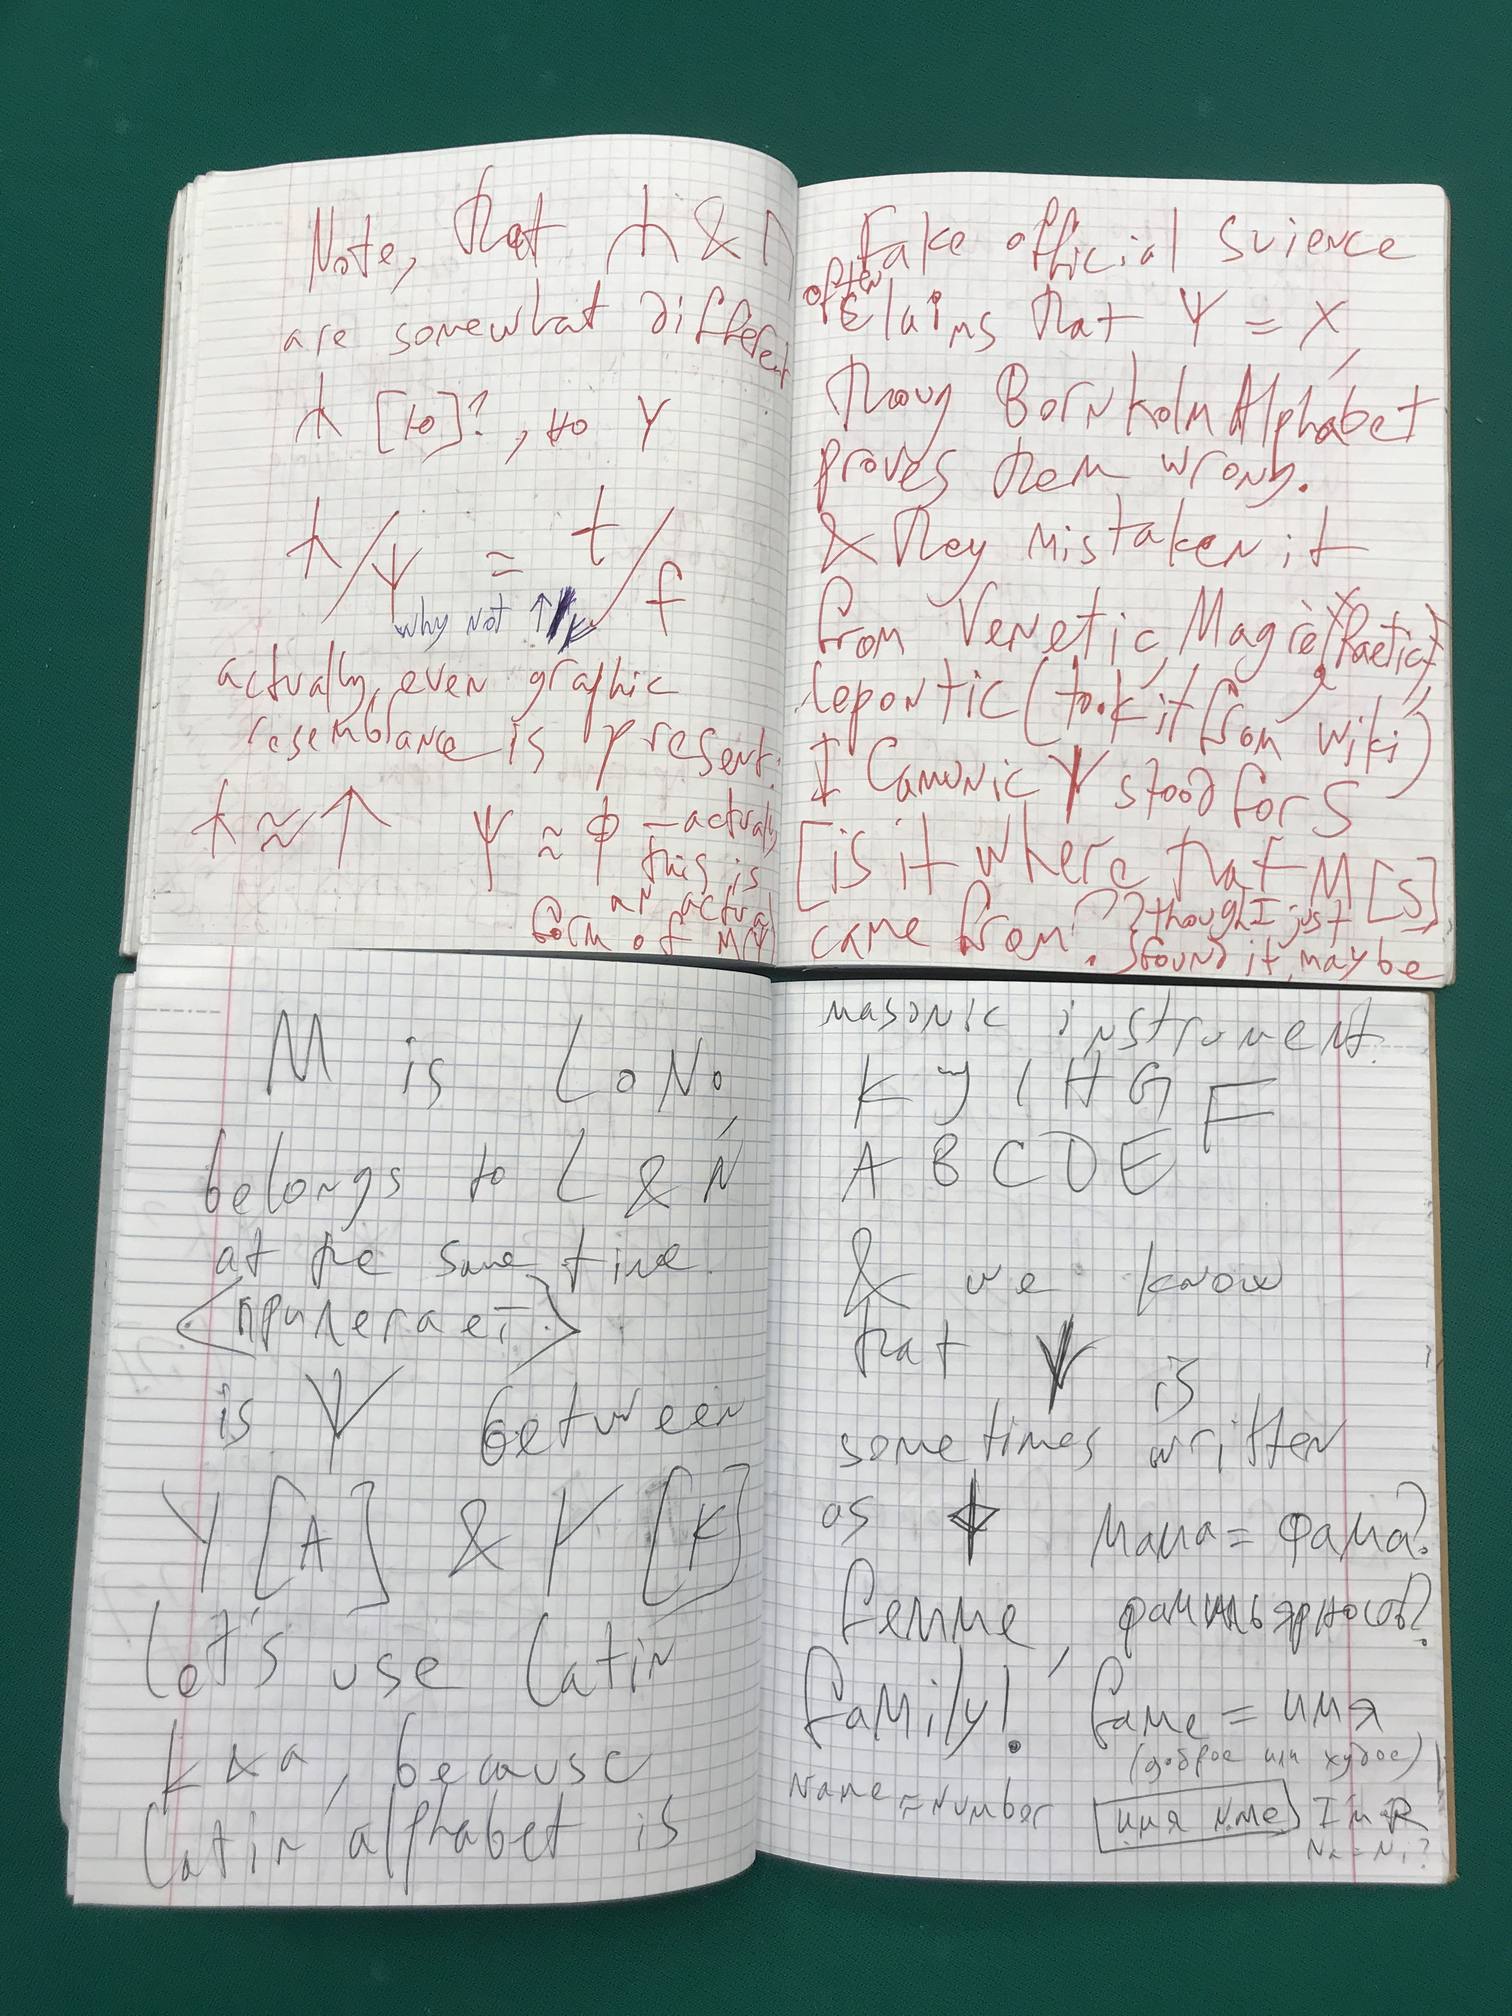 Note, that ⋔ & Π
are somewhat different
[ю]?, но Y
/Ψ = t/f
why not ↑
actually, even graphic
resemblance is present:
≈ ↑ Ψ ≈ ϕ – actually
this is
an actual
form of M(Ψ)
Fake official science
often
claims that Ψ = X,
thoug Bornholm Alphabet
proves them wrong.
& they mistaken it
from Venetic, Magrè (Raetic)
lepontic (took it from wiki)
I Camunic Ψ stood for S
[is it where that M [S]
came from?? though I just
found it, maybe
M is LoNo,
belongs to L & N
at the same time.
<прилегает>
is Ψ between
Y [A] & Y [K]
Let's use Latin
k & a, because
Latin alphabet is
masonic instrument.
K J I H G F
A B C D E
& we know
that Ψ is
sometimes written
as мама = фама?
femme, фамильярность?
family! fame = имя
(доброе или худое)
Name = Number имя NME I'm R